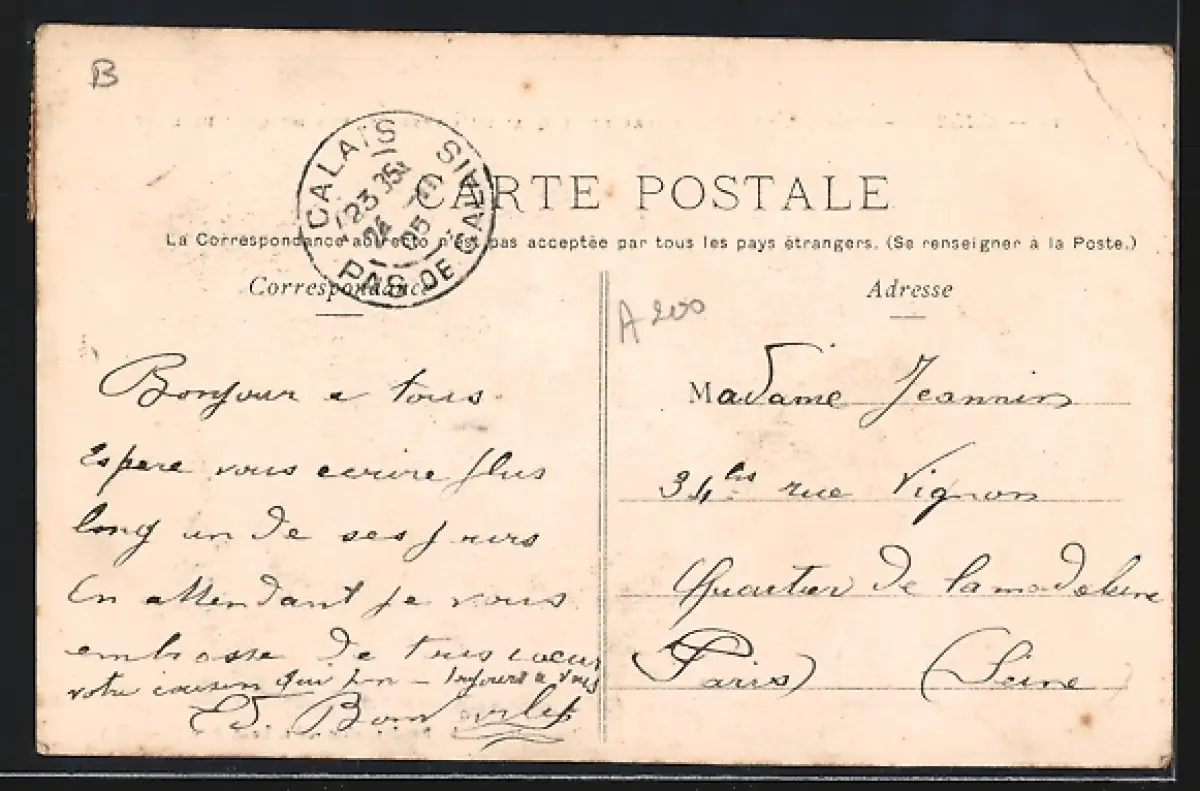 B
CALAIS CALAIS
23 35
24
05
PAS DE CALAIS
CARTE POSTALE
La Correspondance au recto n'est pas acceptée par tous les pays étrangers. (Se renseigner à la Poste.)
Correspondance
Adresse
A 200
Bonjour a tous
Espere vous ecrire plus
long un de ses jours
En attendant je vous
embrasse de tous coeur
votre cousin qui pen - toujours a vous
Ed. Bon
Madame Jeannin
34 bis rue Vignon
Quartier de Lamadeleine
Paris (Seine)